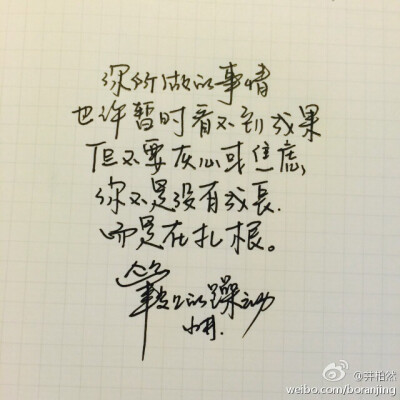 你所做的事情
也许暂时看不到成果
但不要灰心或焦虑,
你不是没有成長.
而是在扎根。
的躁动
@井柏然
weibo.com/boranjing